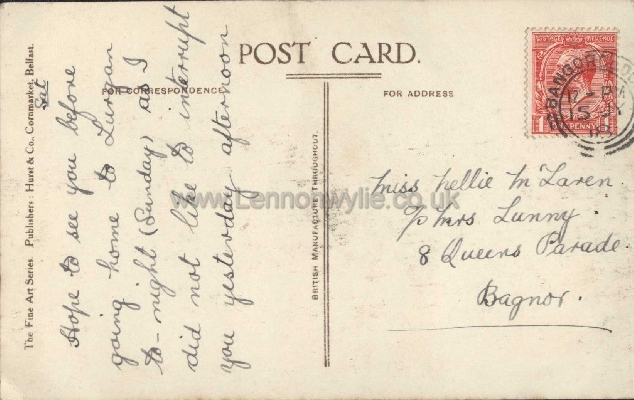 POST CARD.
FOR CORRESPONDENCE
FOR ADDRESS
Sat
Hope to see you before
going home to Lurgan
to-night (Sunday) as I
did not like to interrupt
you yesterday afternoon
Miss Nellie McLaren
c/o Mrs Lunny
8 Queens Parade
Bagnor.
The Fine Art Series. Publishers: Hurst & Co., Cornmarket, Belfast.
BRITISH MANUFACTURE THROUGHOUT.
BANGOR
15 JY
PENNY
www.LennonWylie.co.uk